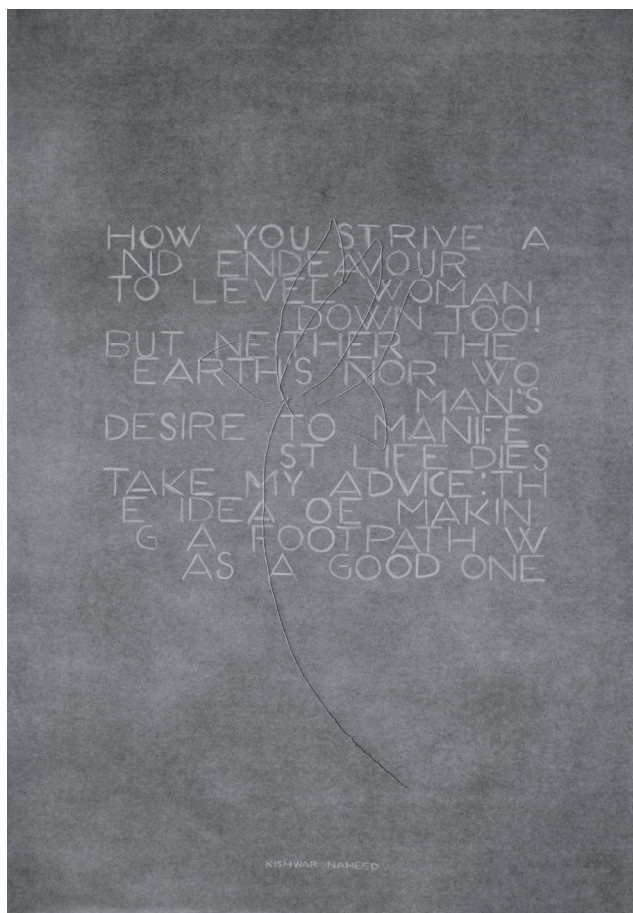 HOW YOU STRIVE A
ND ENDEAVOUR
TO LEVEL WOMAN
DOWN TOO!
BUT NEITHER THE
EARTH'S NOR WO
MAN'S
DESIRE TO MANIFE
ST LIFE DIES
TAKE MY ADVICE:TH
E IDEA OF MAKIN
G A FOOTPATH W
AS A GOOD ONE
KISHWAR NAHEED